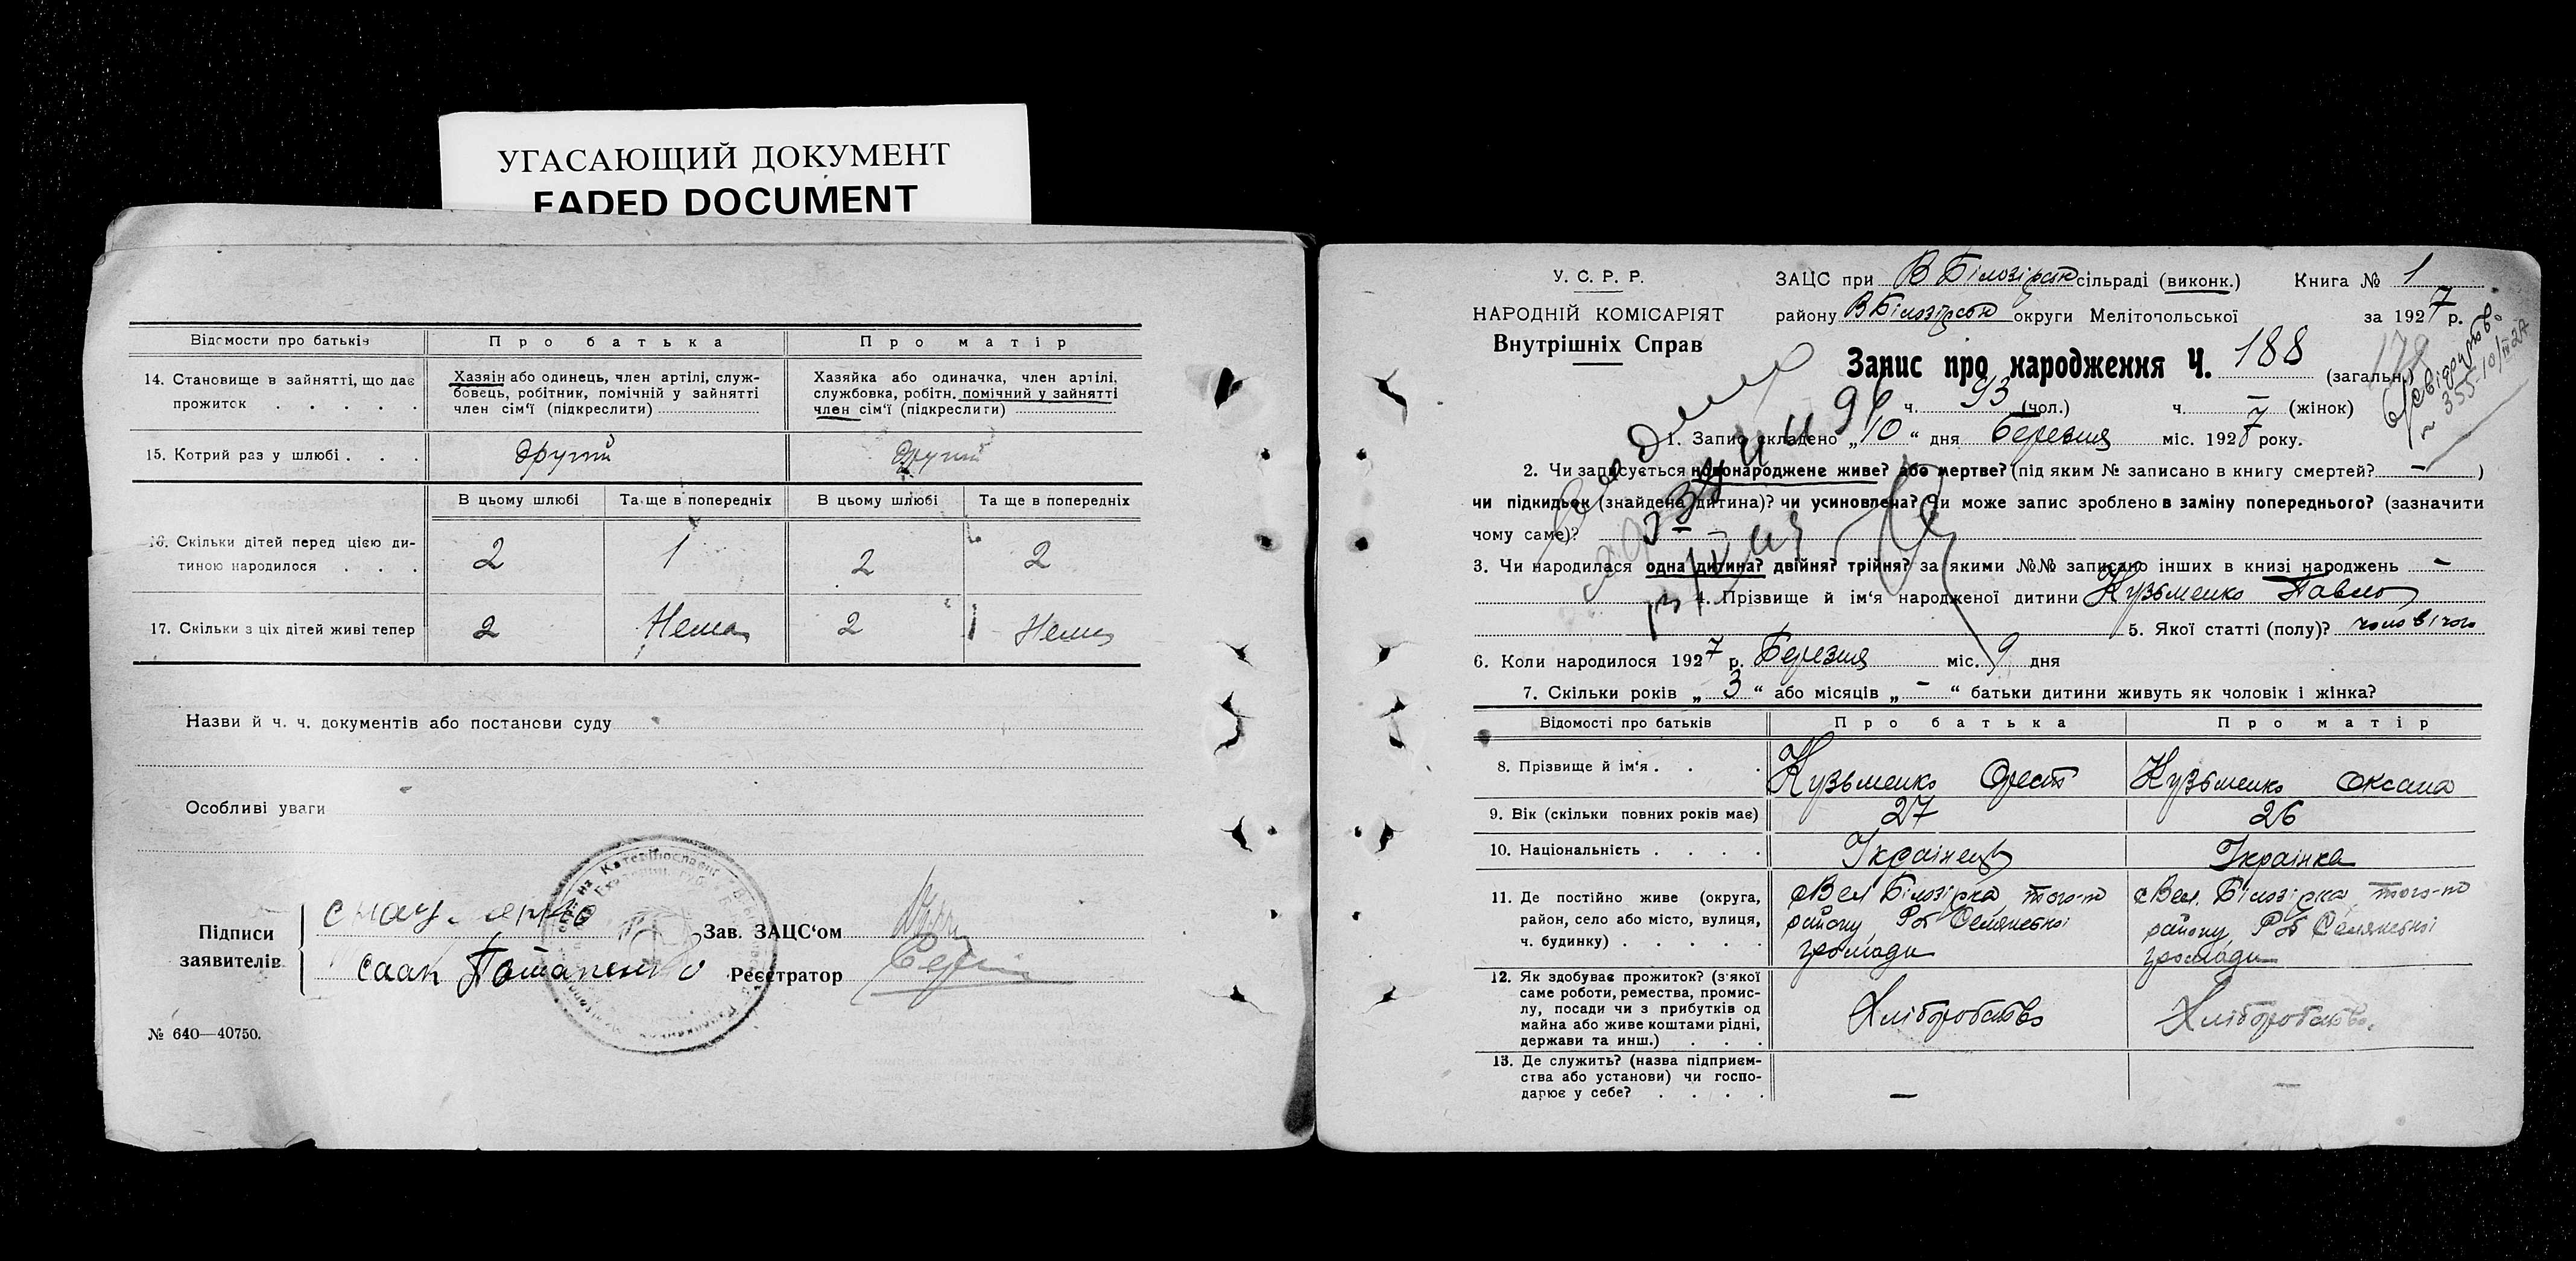 УГАСАЮЩИЙ ДОКУМЕНТ
FADED DOCUMENT
Відомости про батьків
Про батька
Про матір
14. Становище в зайнятті, що дає прожиток . . . . .
Хазяін або одинець, член артілі, служ-
бовець, робітник, помічній у зайнятті
член сім'ї (підкреслити)
Хазяйка або одиначка, член артілі,
службовка, робітн. помічний у зайнятті
член сім'ї (підкреслити)
15. Котрий раз у шлюбі . . .
другий
другий
В цьому шлюбі
Та ще в попередніх
В цьому шлюбі
Та ще в попередніх
16. Скільки дітей перед цією ди-
тиною народилося . . .
2
1
2
2
17. Скільки з ціх дітей живі тепер
2
Нема
2
Нема
Назви й ч. ч. документів або постанови суду
Особливі уваги
Підписи
заявителів
Потапенко
Зав. ЗАЦС'ом
Реєстратор
№ 640—40750.
У. С. Р. Р.
НАРОДНІЙ КОМІСАРІЯТ
Внутрішніх Справ
ЗАЦС при В Білозірськ сільраді (виконк.)
Книга № 1
району В Білозірськ округи Мелітопольської
за 1927 р.
Запис про народження Ч. 188
(загальн.)
178
355-10/III 27
ч. 93 (чол.)
ч. — (жінок)
1. Запис складено „10" дня Березня міс. 1927 року.
2. Чи записується новонароджене живе? або мертве? (під яким № записано в книгу смертей? — )
чи підкидьок (знайдена дитина)? чи усиновлена? Чи може запис зроблено в заміну попереднього? (зазначити
чому саме)? —
3. Чи народилася одна дитина? двійня? трійня? за якими №№ записано інших в книзі народжень —
4. Прізвище й ім'я народженої дитини Кузьменко Павло
5. Якої статті (полу)? чоловічого
6. Коли народилося 1927 р. Березня міс. 9 дня
7. Скільки років „3" або місяців „-" батьки дитини живуть як чоловік і жінка?
Відомості про батьків
Про батька
Про матір
8. Прізвище й ім'я . . .
Кузьменко Орест
Кузьменко Оксана
9. Вік (скільки повних років має)
27
26
10. Національність . . . .
Українець
Українка
11. Де постійно живе (округа,
район, село або місто, вулиця,
ч. будинку) . . . . .
с Вел Білозірка того-ж
району
громади
с Вел. Білозірка, того-ж
району
громади
12. Як здобуває прожиток? (з якої
саме роботи, ремества, промис-
лу, посади чи з прибутків од
майна або живе коштами рідні,
держави та инш.) . . .
Хліборобство
Хліборобство.
13. Де служить? (назва підприєм-
ства або установи) чи госпо-
дарює у себе? . . . .
—
—